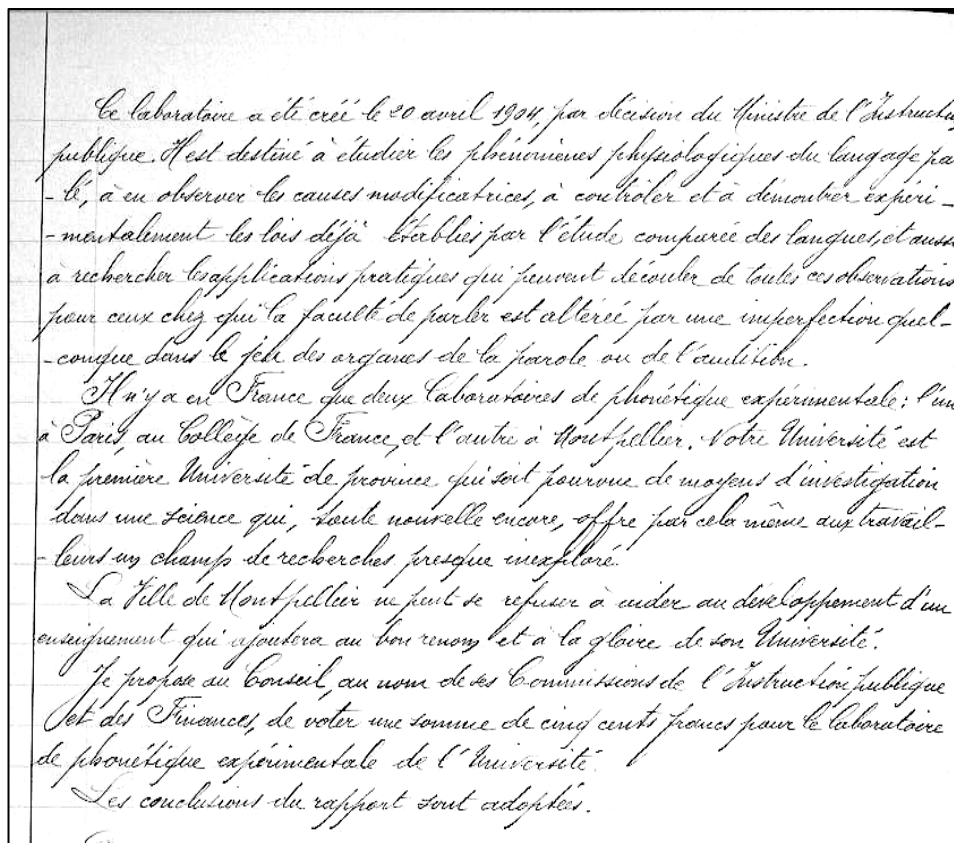 Ce laboratoire a été créé le 20 avril 1904, par décision du Ministre de l'Instructi
publique. Il est destiné à étudier les phénomènes physiologiques du langage pa
-lé, à en observer les causes modificatrices, à contrôler et à démontrer expéri-
-mentalement les lois déjà établies par l'étude comparée des langues, et auss
à rechercher les applications pratiques qui peuvent découler de toutes ces observations
pour ceux chez qui la faculté de parler est altérée par une imperfection quel-
-conque dans le jeu des organes de la parole ou de l'audition.
Il n'y a en France que deux laboratoires de phonétique expérimentale : l'un
à Paris, au Collège de France, et l'autre à Montpellier. Notre Université est
la première Université de province qui soit pourvue de moyens d'investigation
dans une science qui, toute nouvelle encore, offre par cela même aux travail-
-leurs un champ de recherches presque inexploré.
La Ville de Montpellier ne peut se refuser à aider au développement d'un
enseignement qui ajoutera au bon renom et à la gloire de son Université.
Je propose au Conseil, au nom de ses Commissions de l'Instruction publique
et des Finances, de voter une somme de cinq cents francs pour le laboratoire
de phonétique expérimentale de l'Université.
Les conclusions du rapport sont adoptées.